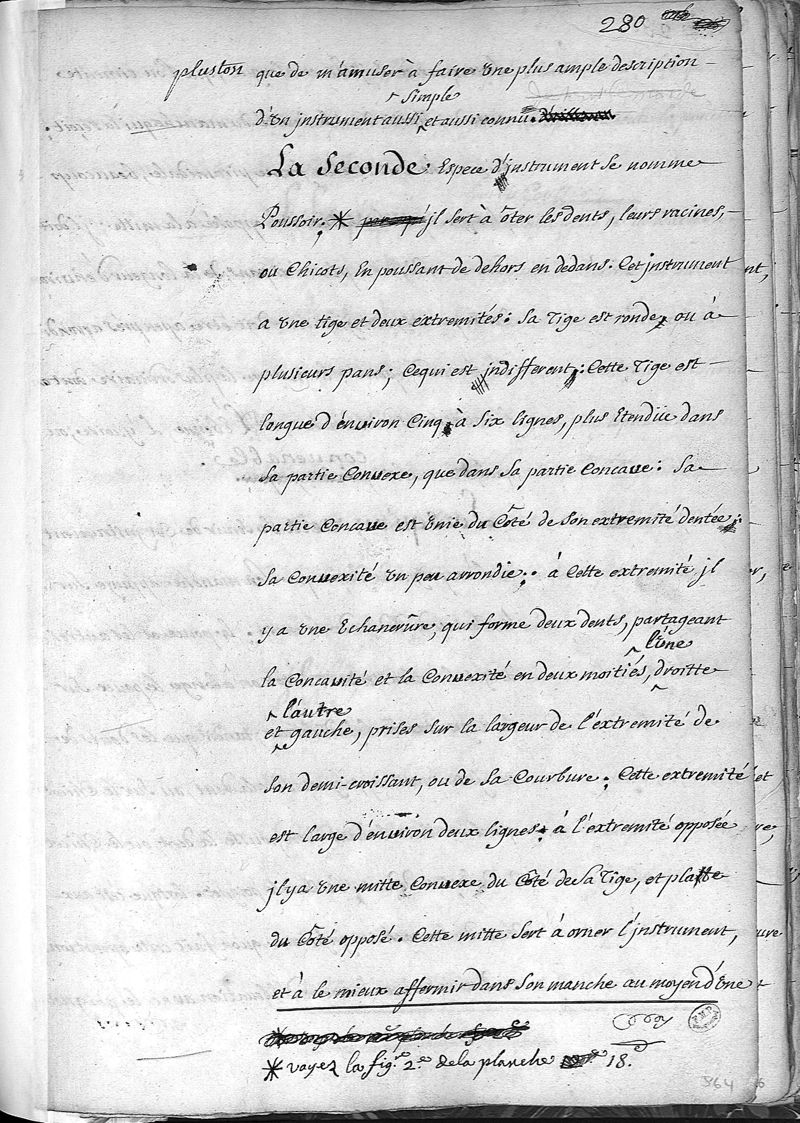 280
plustôt que de m'amuser à faire une plus ample description
simple
d'un jnstrument aussi et aussi connu.
La Seconde Espece d'jnstrument se nomme
Poussoir; * jl sert à ôter les dents, leurs racines,
ou Chicots, En poussant de dehors en dedans. Cet jnstrument
a une tige et deux extremités: Sa Tige est ronde, ou à
plusieurs pans; Cequi est jndifferent: Cette Tige est
longue d'énviron Cinq à Six lignes, plus Etendüe dans
Sa partie Convexe, que dans Sa partie Concave: Sa
partie Concave est unie du Côté de Son extremité dentée;
Sa Convexité un peu arrondie; á Cette extremité jl
y a une Echancrûre, qui forme deux dents, partageant
l'úne
la Concavité et la Convexité en deux moitiés, droitte
l'autre
et gauche, prises sur la largeur de l'éxtremité de
Son demi-croissant, ou de Sa Courbure; Cette extremité
est large d'énviron deux lignes: á l'éxtremité opposée
jl y a une mitte Convexe du Côté de la Tige, et platte
du Côté opposé. Cette mitte Sert á orner l'jnstrument,
et à le mieux affermir dans Son manche au moyen d'úne
* voyez la fig.re 2.e de la planche 18.e
364